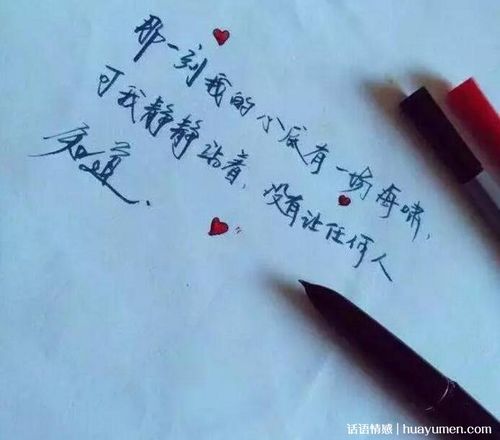 那一刻我的心底有一场海啸，
可我静静站着，没有让任何人
知道.
话语情感 | huayumen.com